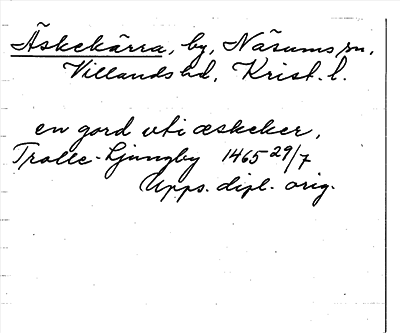 Äskekärra, by, Näsums sn,
Villands hd, Krist. l.
en gord uti æskeker,
Trolle-Ljungby 1465 29/7
Upps. dipl. orig.